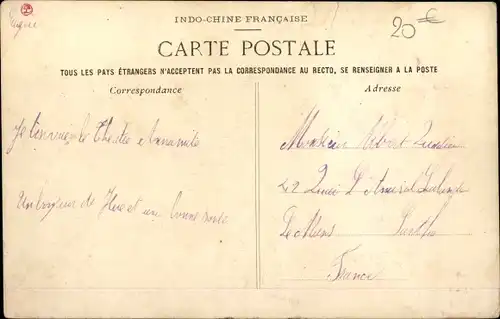 INDO-CHINE FRANÇAISE
20 €
CARTE POSTALE
TOUS LES PAYS ÉTRANGERS N'ACCEPTENT PAS LA CORRESPONDANCE AU RECTO, SE RENSEIGNER A LA POSTE
Correspondance
le Théâtre Annamite
de Hué et une bonne
Adresse
Monsieur Albert
22 Quai L'Amiral
Le Mans Sarthe
France